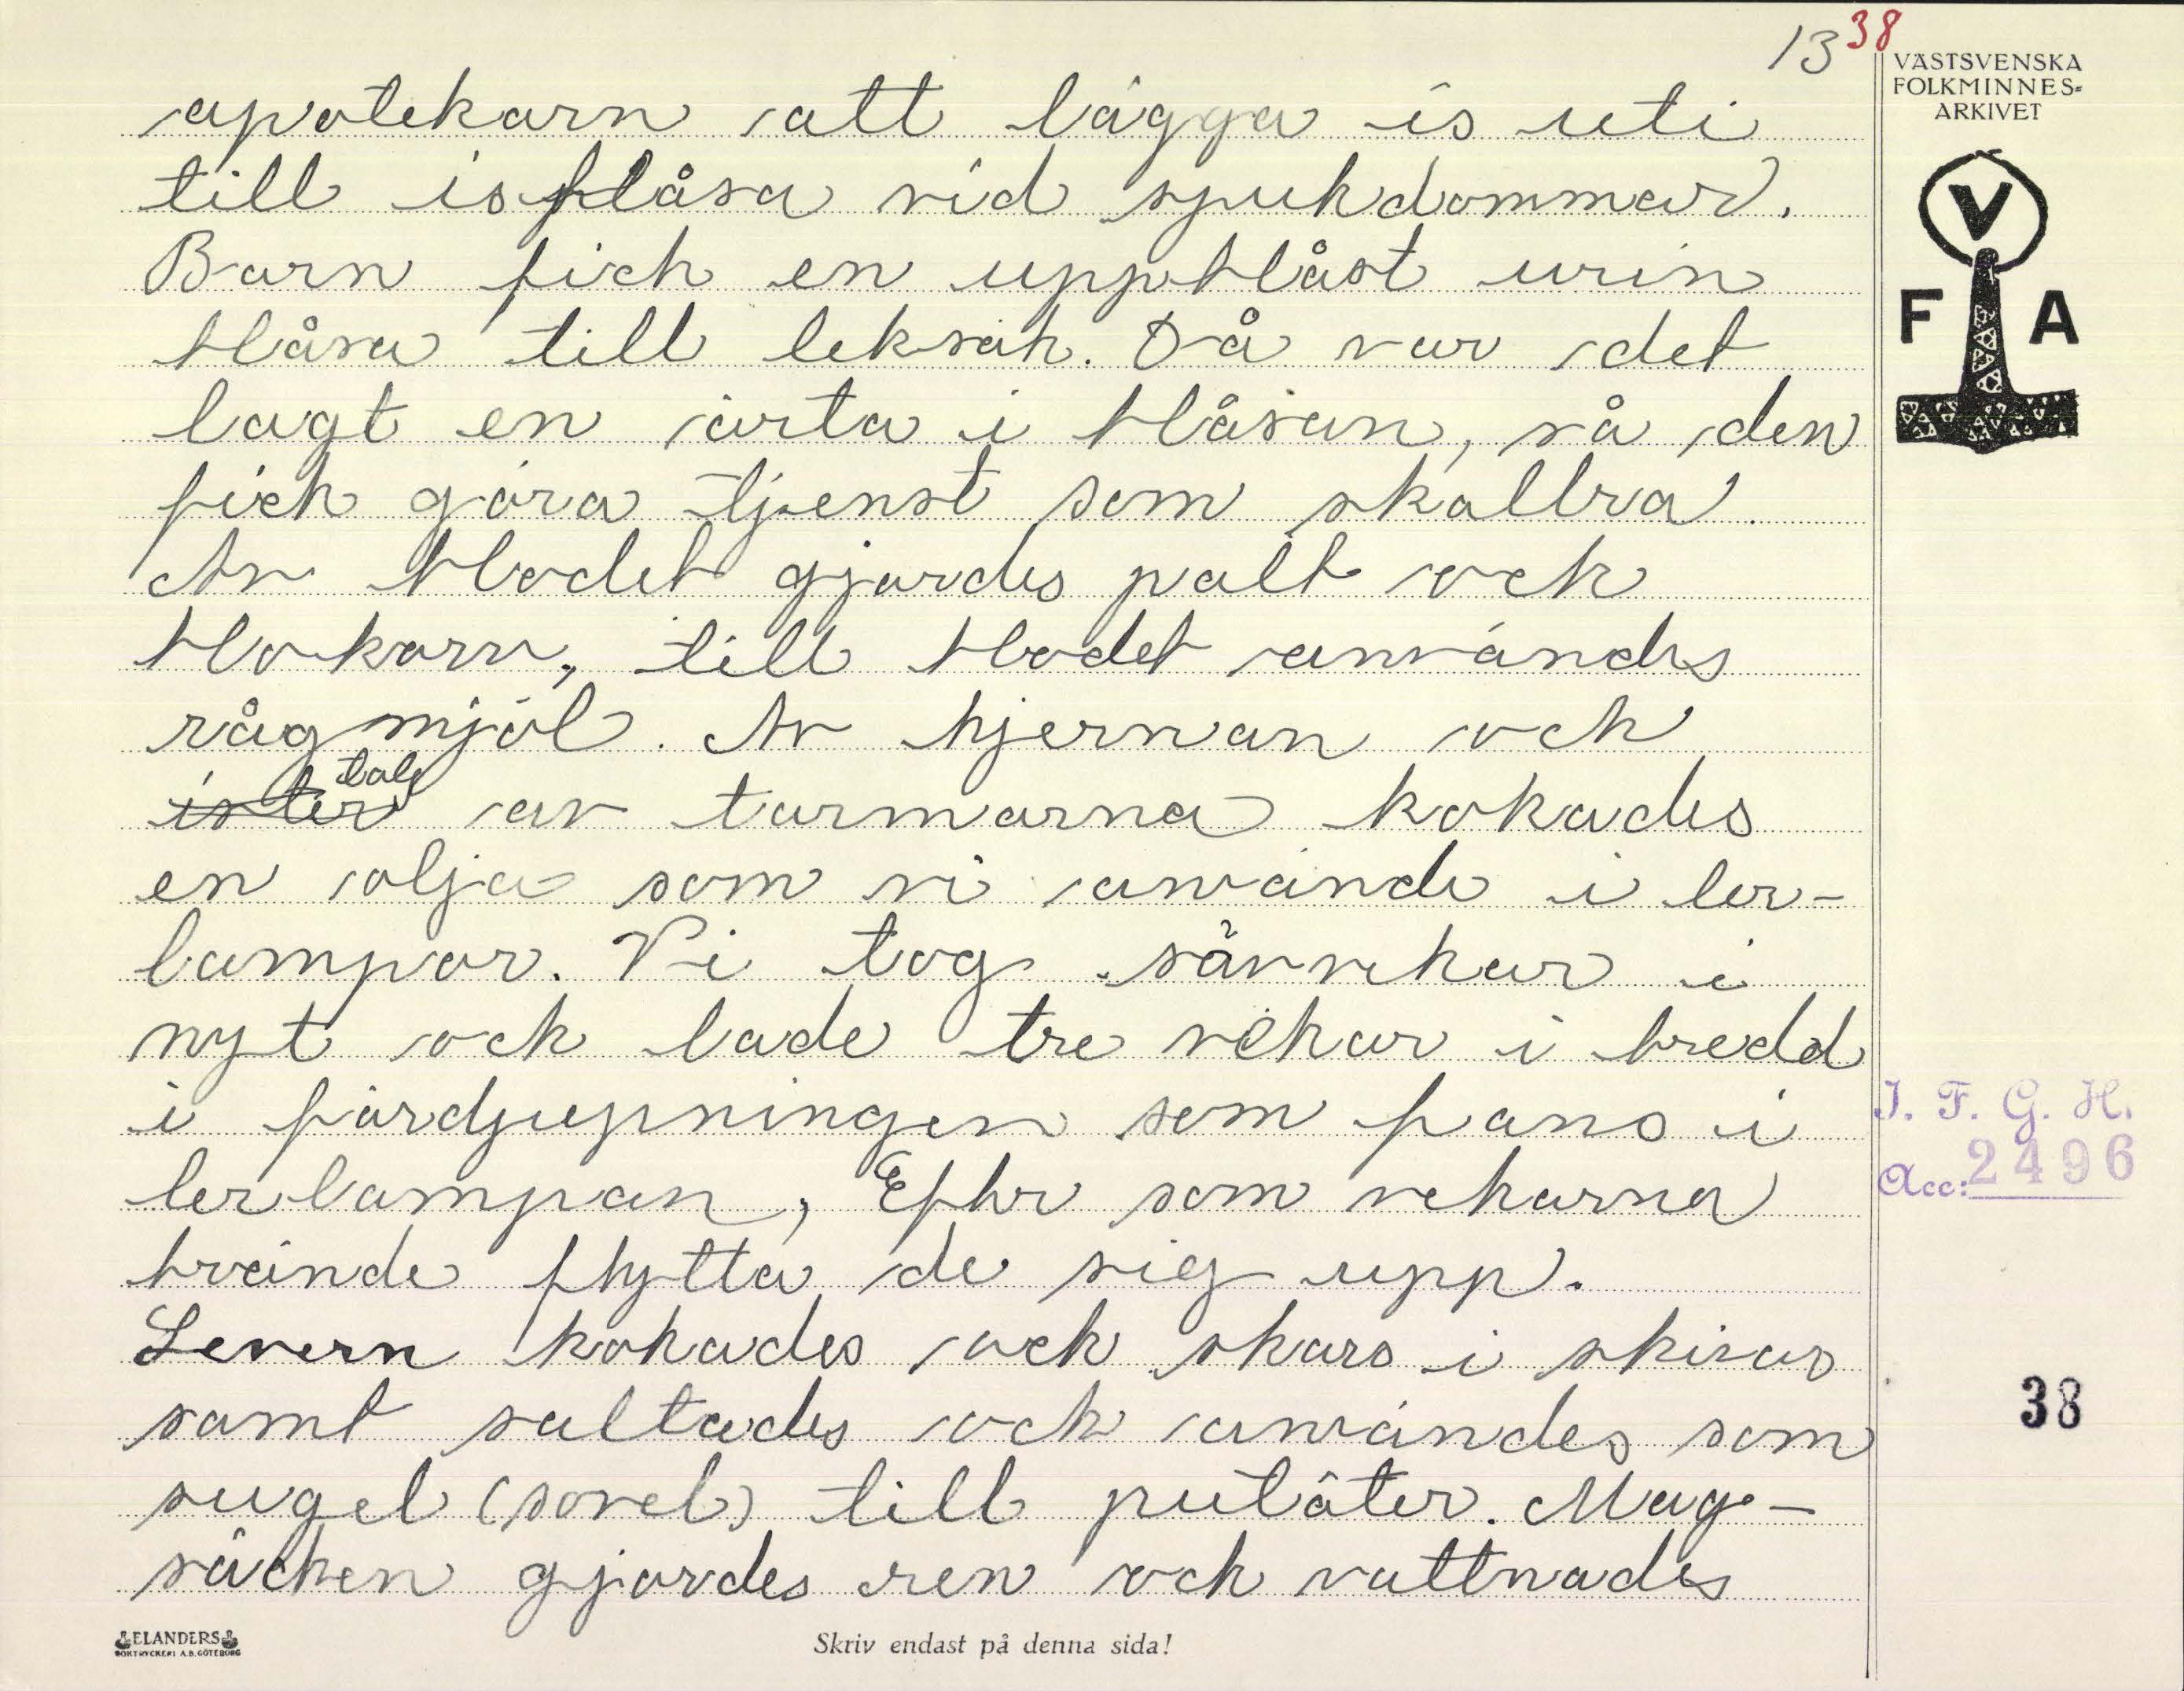 13 38
VÄSTSVENSKA
FOLKMINNES=
ARKIVET
V
F A
apotekarn att lägga is uti
till isblåsa vid sjukdommar.
Barn fick en uppblåst urin
blåsa till leksak. Då var det
lagt en ärta i blåsan, så den
fick göra tjenst som skallra.
Av blodet gjordes palt och
blokorv, till blodet användes
rågmjöl. Av hjernan och
ister talg av tarmarna kokades
en olja som vi använde i ler-
lampor. Vi tog sävvekar i
nyt och lade tre vekar i bredd
i fördjupningen som fans i
lerlampan, Efter som vekarna
brände flytta de sig upp.
Levern kokades och skars i skivor
samt saltades och användes som
sugel (sovel) till putäter. Mag-
säcken gjordes ren och vattnades
I. F. G. H.
Acc: 2496
38
ELANDERS
BOKTRYCKERI A.B. GÖTEBORG
Skriv endast på denna sida!